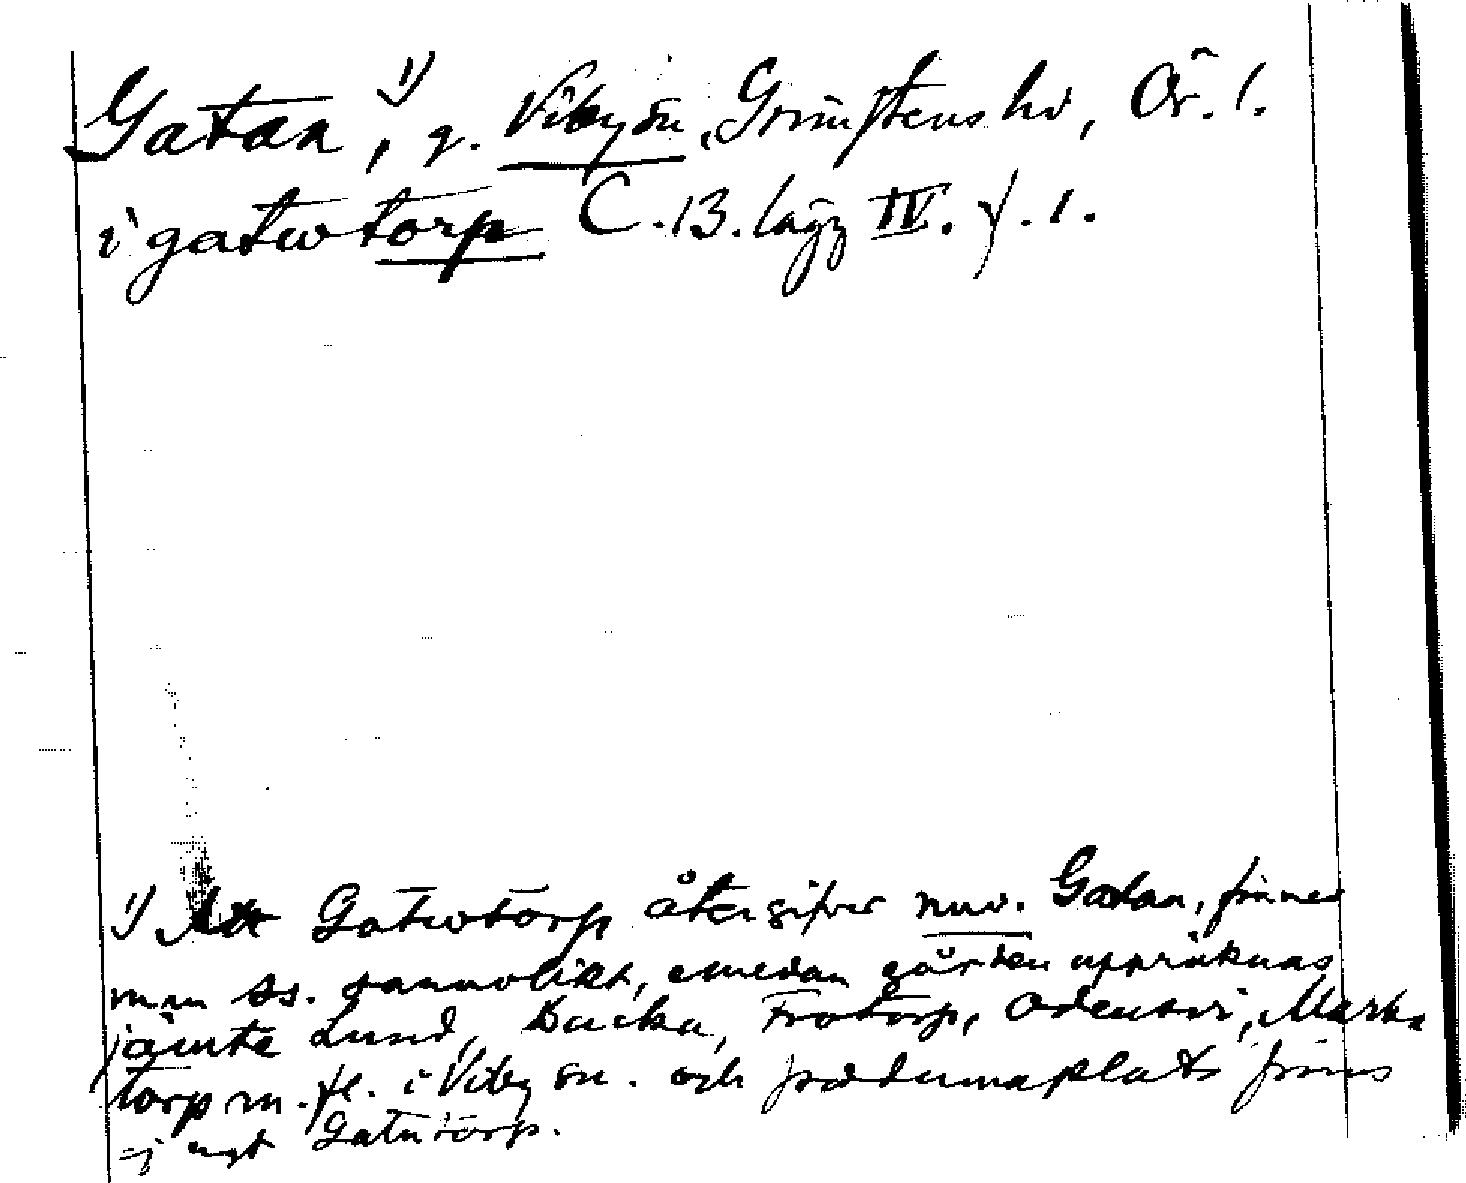 Gatan,¹⁾ g. Viby sn, Grimstens hd, Ör. l.
i gatwtorp C. 13. lägg IV. f. 1.
¹⁾ Att Gatwtorp återgifver nuv. Gatan, finner
man ss. sannolikt, emedan gården uppräknas
jämte Lund, Backa, Frotorp, Odensvi, Marka
torp m. fl. i Viby sn. och på denna plats finns
ej ngt Gatutorp.